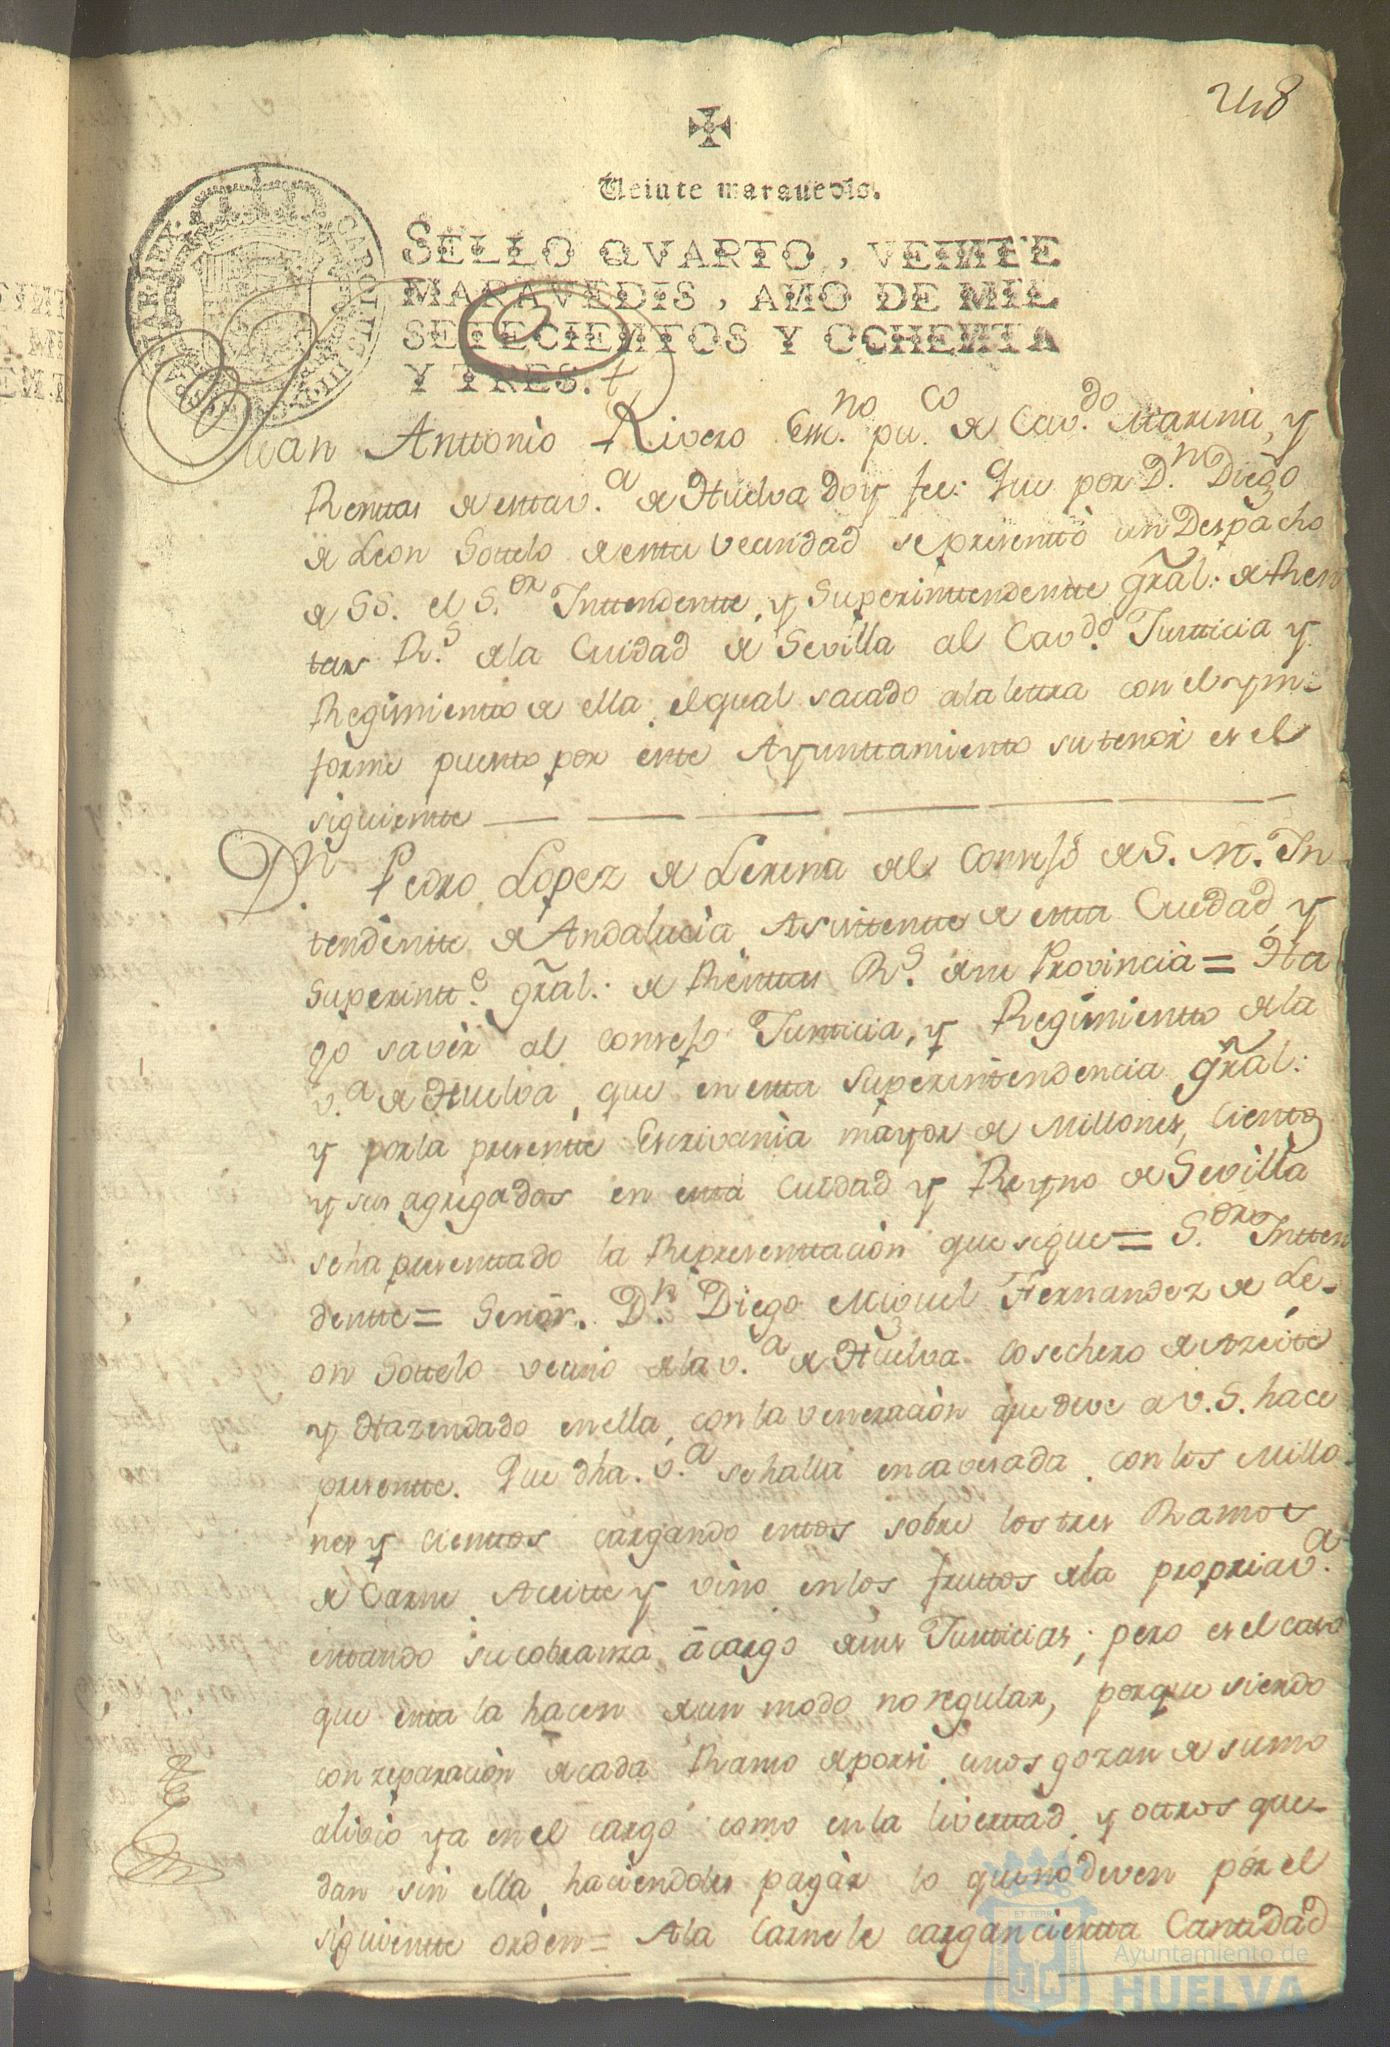 248
Veinte maravedis.
SELLO QVARTO, VEINTE
MARAVEDIS, AÑO DE MIL
SETECIENTOS Y OCHENTA
Y TRES.
CAROLUS III D G HISPANIAR REX
Juan Anttonio Rivero Essc.no pu.co de Cav.do Marina, y
Renttas de estta v.a de Huelva doy fee: Que por D.n Diego
de Leon Sottelo de estta vecindad se presenttò un Despacho
de SS. el S.or Inttendentte, y Superinttendentte grãl: de Ren
tas R.s de la Ciudad de Sevilla al Cav.do Justticia y
Regimientto de ella, el qual sacado a la lettra con el ym-
forme puesto por estte Ayunttamiento su tenor es el
siguientte
D.n Pedro Lopez de Lerena del Consejo de S. M. In
tendentte de Andalucia, Asisttentte de estta Ciudad, y
Superintt.e grãl: de Renttas R.s de su Provincia = Ha
go saver al Consejo Justticia, y Regimientto de la
v.a de Huelva, que en estta Superintendencia grãl:
y por la presentte Escrivania mayor de Millones, Cientos
y sus agregados en estta Ciudad y Reyno de Sevilla
se ha presenttado la Representtacion que sigue = S.or Intten
dentte = Señor. D.n Diego Miguel Fernandez de Le-
on Sottelo vecino de la v.a de Huelva cosechero de Azeite
y Hazendado en ella, con la veneracion que deve a V. S. hace
presentte. Que dha. v.a se halla encavesada con los Millo
nes y cienttos cargando esttos sobre los tres Ramos
de Carne Aceitte y vino en los fruttos de la propria v.a
esttando su cobranza à cargo de sus Justticias; pero es el caso
que estta la hacen de un modo no regular, porque siendo
con separacion de cada Ramo de por si unos gozan de sumo
alivio ya en el cargo como en la liverttad y ottros que-
dan sin ella haciendoles pagar lo que no deven por el
siguientte orden = A la Carne le cargan ciertta Canttidad
Ayuntamiento de
HUELVA